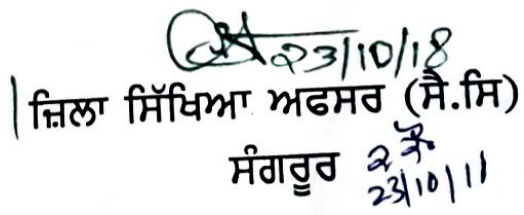 23/10/18
ਜ਼ਿਲਾ ਸਿੱਖਿਆ ਅਫਸਰ (ਸੈ.ਸਿ)
ਸੰਗਰੂਰ
23/10/11